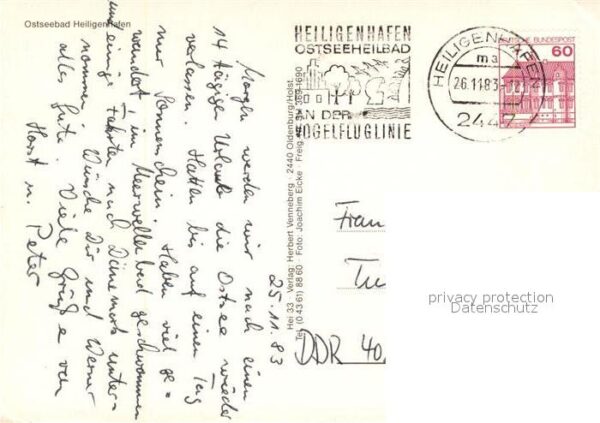 Ostseebad Heiligenhafen
25.11.83
Morgen werden wir nach einen
14 tägige Urlaub die Ostsee wieder
verlassen. Hatten bis auf einen Tag
nur Sonnenschein. Haben viel ge=
wandert, im Meerwellenbad geschwommen
und einige Fahrten nach Dänemark unter=
nommen. Wünsche Dir und Werner
alles Gute. Viele Grüße von
Horst u. Peter
Hei 33 · Verlag: Herbert Venneberg · 2440 Oldenburg/Holst.
Tel. (0 43 61) 88 60 · Foto: Joachim Eicke · Freig.
HEILIGENHAFEN
OSTSEEHEILBAD
AN DER
VOGELFLUGLINIE
HEILIGENHAFEN
ma
26.11.83
2447
DEUTSCHE BUNDESPOST
60
Frau
DDR 40
privacy protection
Datenschutz